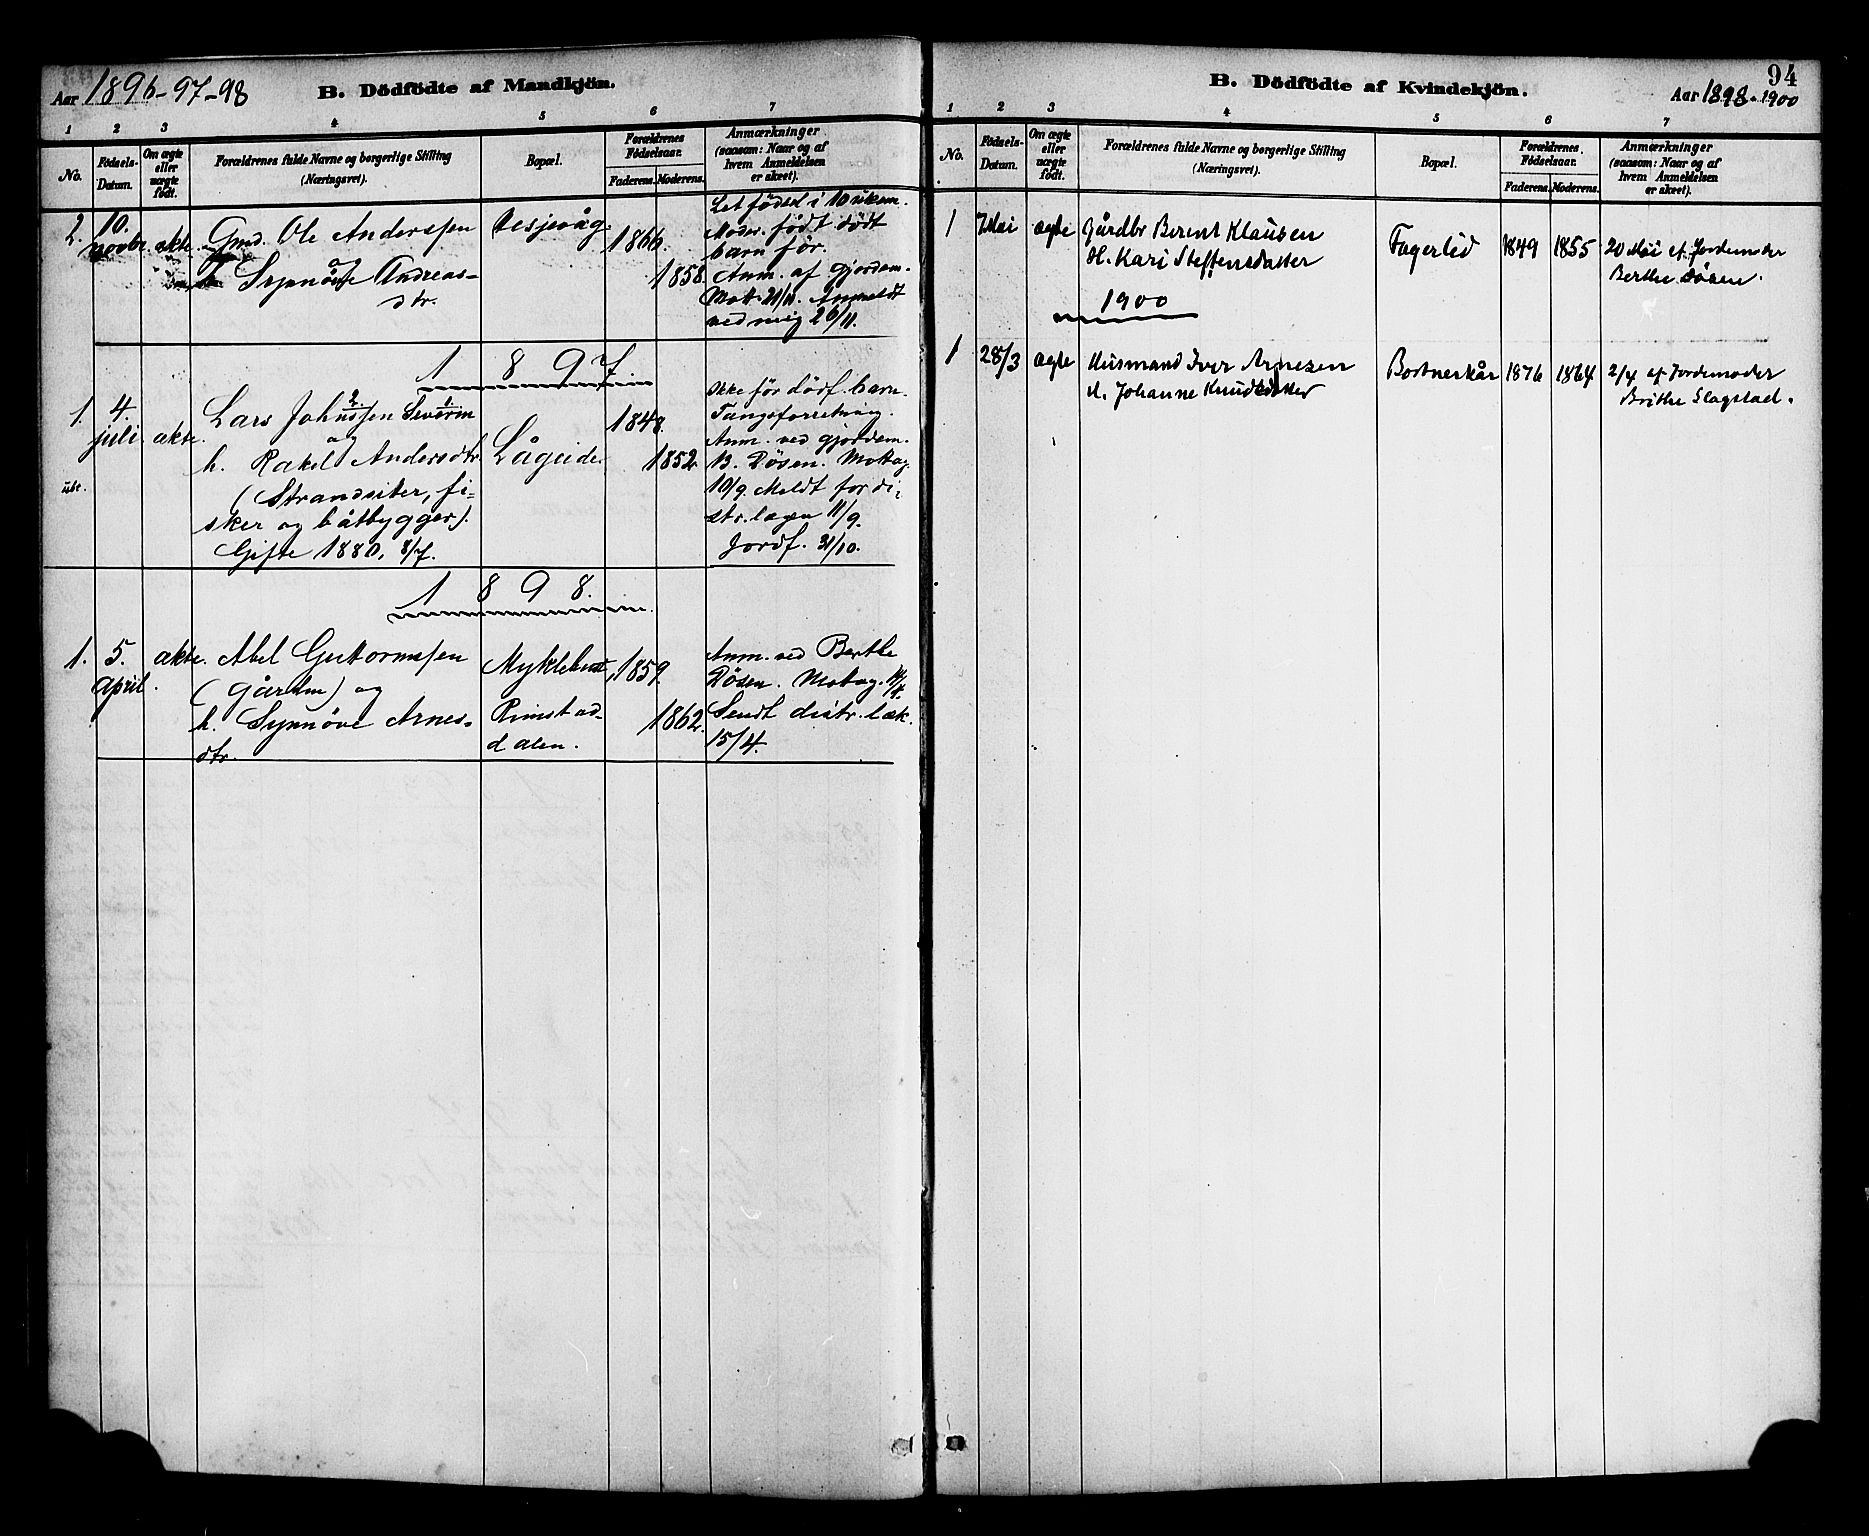 Aar 1896-97-98
B. Dödfödte af Mandkjön.
1 2 3 4 5 6 7
No.
Födsels-
Datum.
Om ægte
eller
uægte
födt.
Forældrenes fulde Navne og borgerlige Stilling
(Næringsvei).
Bopæl.
Forældrenes
Födselsaar.
Faderens. Moderens.
Anmærkninger
(saasom: Naar og af
hvem Anmeldelsen
er skeet).
2. 10.
novbr. ekte. Gmd. Ole Anderssen
og
Synnöve Andreas-
dtr.
1866.
1858.
Let fødsel i 10 ukem.
Moder. født dødt
barn før.
Anm. af gjordem.
Mott. 21/11. Anmeldt
ved mig 26/11.
1897
1. 4.
juli. ekte.
Lars Johnssen Severin
og
h. Rakel Andersdtr.
(Strandsiter, fi-
sker og båtbygger).
Gifte 1880, 8/7.
Lågeide.
1848.
1852.
Ikke før dødf. barn.
Tangsforretning.
Anm. ved gjordem.
B. Døsen. Mottag.
10/9. Meldt for di-
str. lægen 11/9.
Jordf. 31/10.
1898.
1. 5.
april. ekte. Abel Guttormssen
(Gårdm) og
h. Synnöve Arnes-
dtr.
Myklebust,
Rimstad-
dalen.
1859.
1862.
Anm. ved Berthe
Døsen. Mottag. 14/4.
Sendt distr. læk.
15/4.
94
B. Dödfödte af Kvindekjön.
Aar 1898-1900
1 2 3 4 5 6 7
No.
Födsels-
Datum.
Om ægte
eller
uægte
födt.
Forældrenes fulde Navne og borgerlige Stilling
(Næringsvei).
Bopæl.
Forældrenes
Födselsaar.
Faderens. Moderens.
Anmærkninger
(saasom: Naar og af
hvem Anmeldelsen
er skeet).
1 7 Mai ægte Gårdbr Berent Klausen
H. Kari Steffensdatter
Fagerlid 1849 1855 20 Mai af Jordemoder
Berthe Døsen.
1900
1 28/3 ægte Husmand Iver Arnesen
H. Johanne Knudsdatter
Bortnerkår 1876 1864 2/4 af Jordemoder
Brithe Slagstad.